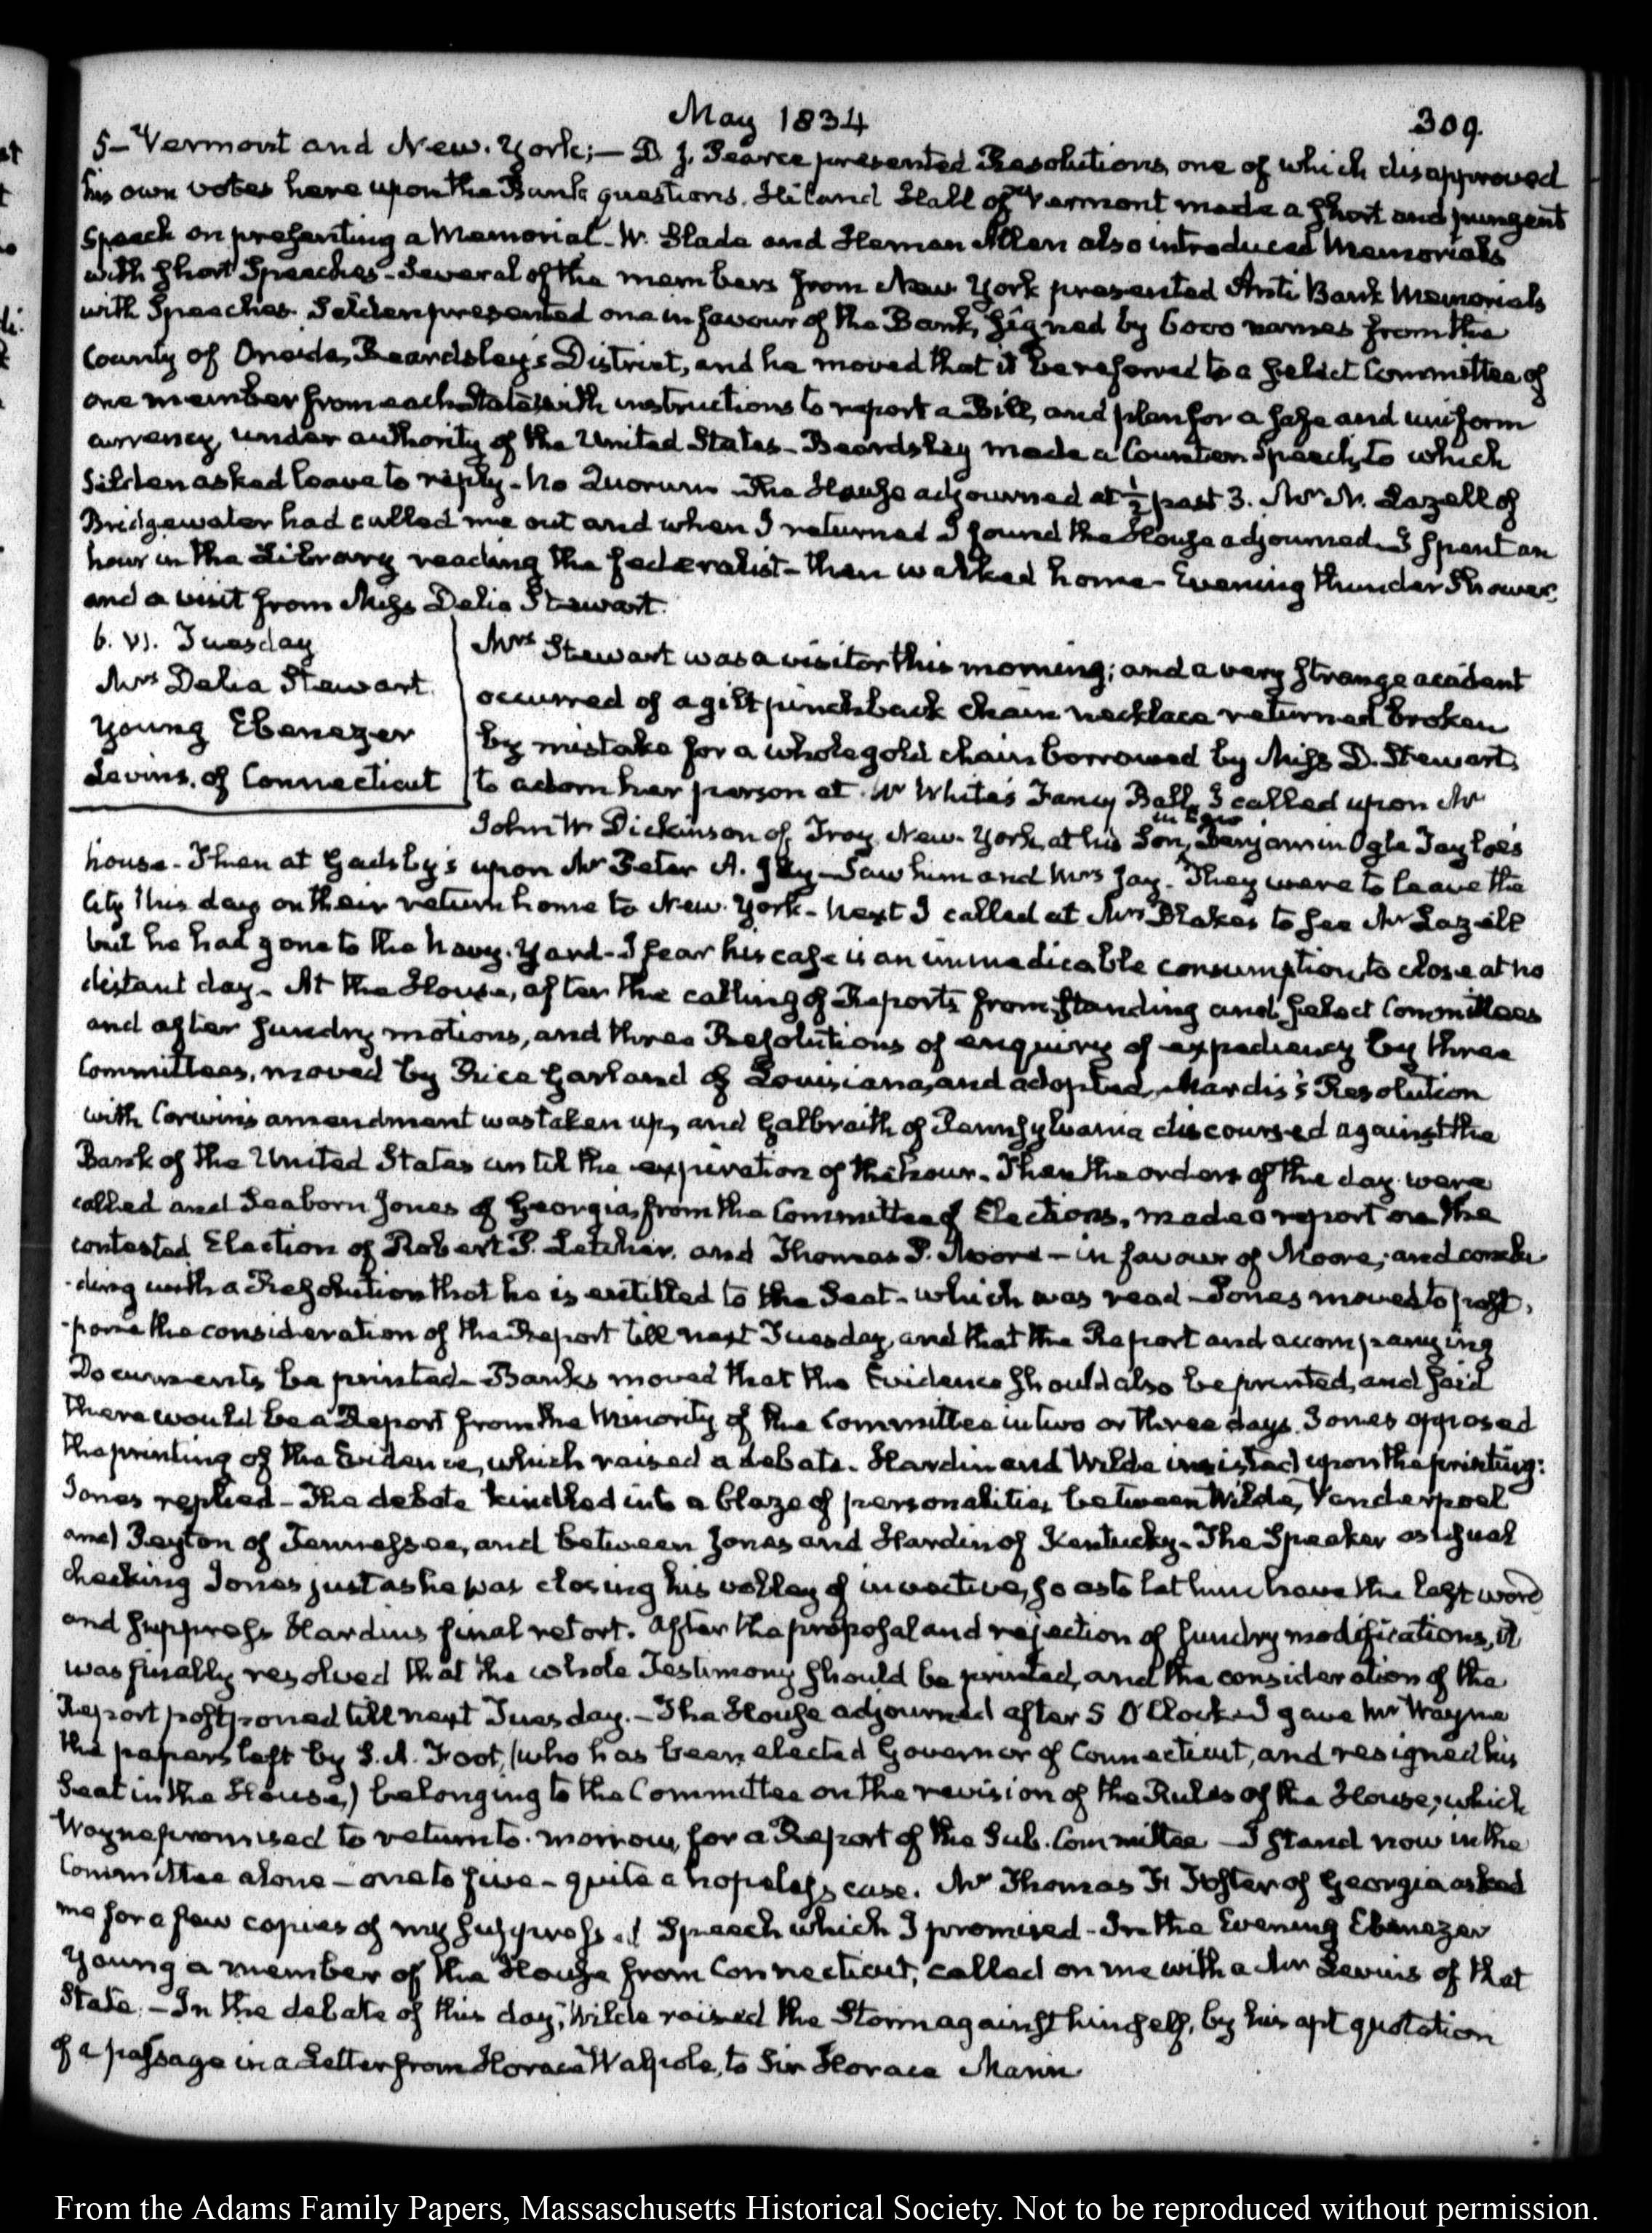 May 1834
309.
5— Vermont and New-York;— D. J. Pearce presented Resolutions one of which disapproved
his own votes here upon the Bank questions. Hiland Hall of Vermont made a short and pungent
Speech on presenting a Memorial. W. Slade and Heman Allen also introduced Memorials
with short Speeches. Several of the members from New York presented Anti Bank Memorials
with Speeches. Selden presented one in favour of the Bank, signed by 6000 names from the
County of Oneida, Beardsley's District, and he moved that it be referred to a select Committee of
one member from each State, with instructions to report a Bill, and plan for a safe and uniform
currency, under authority of the United States. Beardsley made a Counter Speech, to which
Selden asked leave to reply. No Quorum. The House adjourned at ½ past 3. Mr N. Lazell of
Bridgewater had called me out and when I returned I found the House adjourned. I spent an
hour in the Library reading the Federalist— then walked home. Evening thunder Shower,
and a visit from Miss Delia Stewart.
6. VI. Tuesday
Mrs Delia Stewart.
Young Ebenezer
Levins. of Connecticut
Mrs Stewart was a visitor this morning; and a very strange accident
occurred of a gilt pinchback chain necklace returned broken
by mistake for a whole gold chain borrowed by Miss D. Stewart,
to adorn her person at Mr White's Fancy Ball. I called upon Mr
in law
John W Dickinson of Troy, New-York, at his Son, Benjamin Ogle Tayloe's
house. Then at Gadsby's upon Mr Peter A. Jay— Saw him and Mrs Jay. They were to leave the
City this day on their return home to New-York. Next I called at Mrs Blake's to see Mr Lazell
but he had gone to the Navy-Yard. I fear his case is an immedicable consumption, to close at no
distant day. At the House, after the calling of Reports from standing and select Committees
and after sundry motions, and three Resolutions of enquiry of expediency by three
Committees, moved by Rice Garland of Louisiana, and adopted, Mardis's Resolution
with Corwin's amendment was taken up, and Galbraith of Pennsylvania discoursed against the
Bank of the United States until the expiration of the hour. Then the orders of the day were
called and Seaborn Jones of Georgia, from the Committee of Elections, made a report on the
contested Election of Robert P. Letcher, and Thomas P. Moore— in favour of Moore; and conclu
-ding with a Resolution that he is entitled to the Seat— which was read— Jones moved to post-
-pone the consideration of the Report till next Tuesday, and that the Report and accompanying
Documents be printed— Banks moved that the Evidence should also be printed, and said
there would be a Report from the Minority of the Committee in two or three days. Jones opposed
the printing of the Evidence, which raised a debate. Hardin and Wilde insisted upon the printing:
Jones replied— The debate kindled into a blaze of personalities between Wilde, Vanderpoel
and Peyton of Tennessee, and between Jones and Hardin of Kentucky. The Speaker as usual
checking Jones just as he was closing his volley of invective, so as to let him have the last word
and suppress Hardin's final retort. After the proposal and rejection of sundry modifications, it
was finally resolved that the whole Testimony should be printed, and the consideration of the
Report postponed till next Tuesday.— The House adjourned after 5 O'Clock. I gave Mr Wayne
the papers left by S. A. Foot, (who has been elected Governor of Connecticut, and resigned his
Seat in the House,) belonging to the Committee on the revision of the Rules of the House; which
Wayne promised to return to-morrow, for a Report of the Sub-Committee— I stand now in the
Committee alone— one to five— quite a hopeless case. Mr Thomas F. Foster of Georgia asked
me for a few copies of my suppressed Speech which I promised— In the Evening Ebenezer
Young a member of the House from Connecticut, called on me with a Mr Levins of that
State.— In the debate of this day, Wilde raised the Storm against himself, by his apt quotation
of a passage in a Letter from Horace Walpole, to Sir Horace Mann
From the Adams Family Papers, Massaschusetts Historical Society. Not to be reproduced without permission.